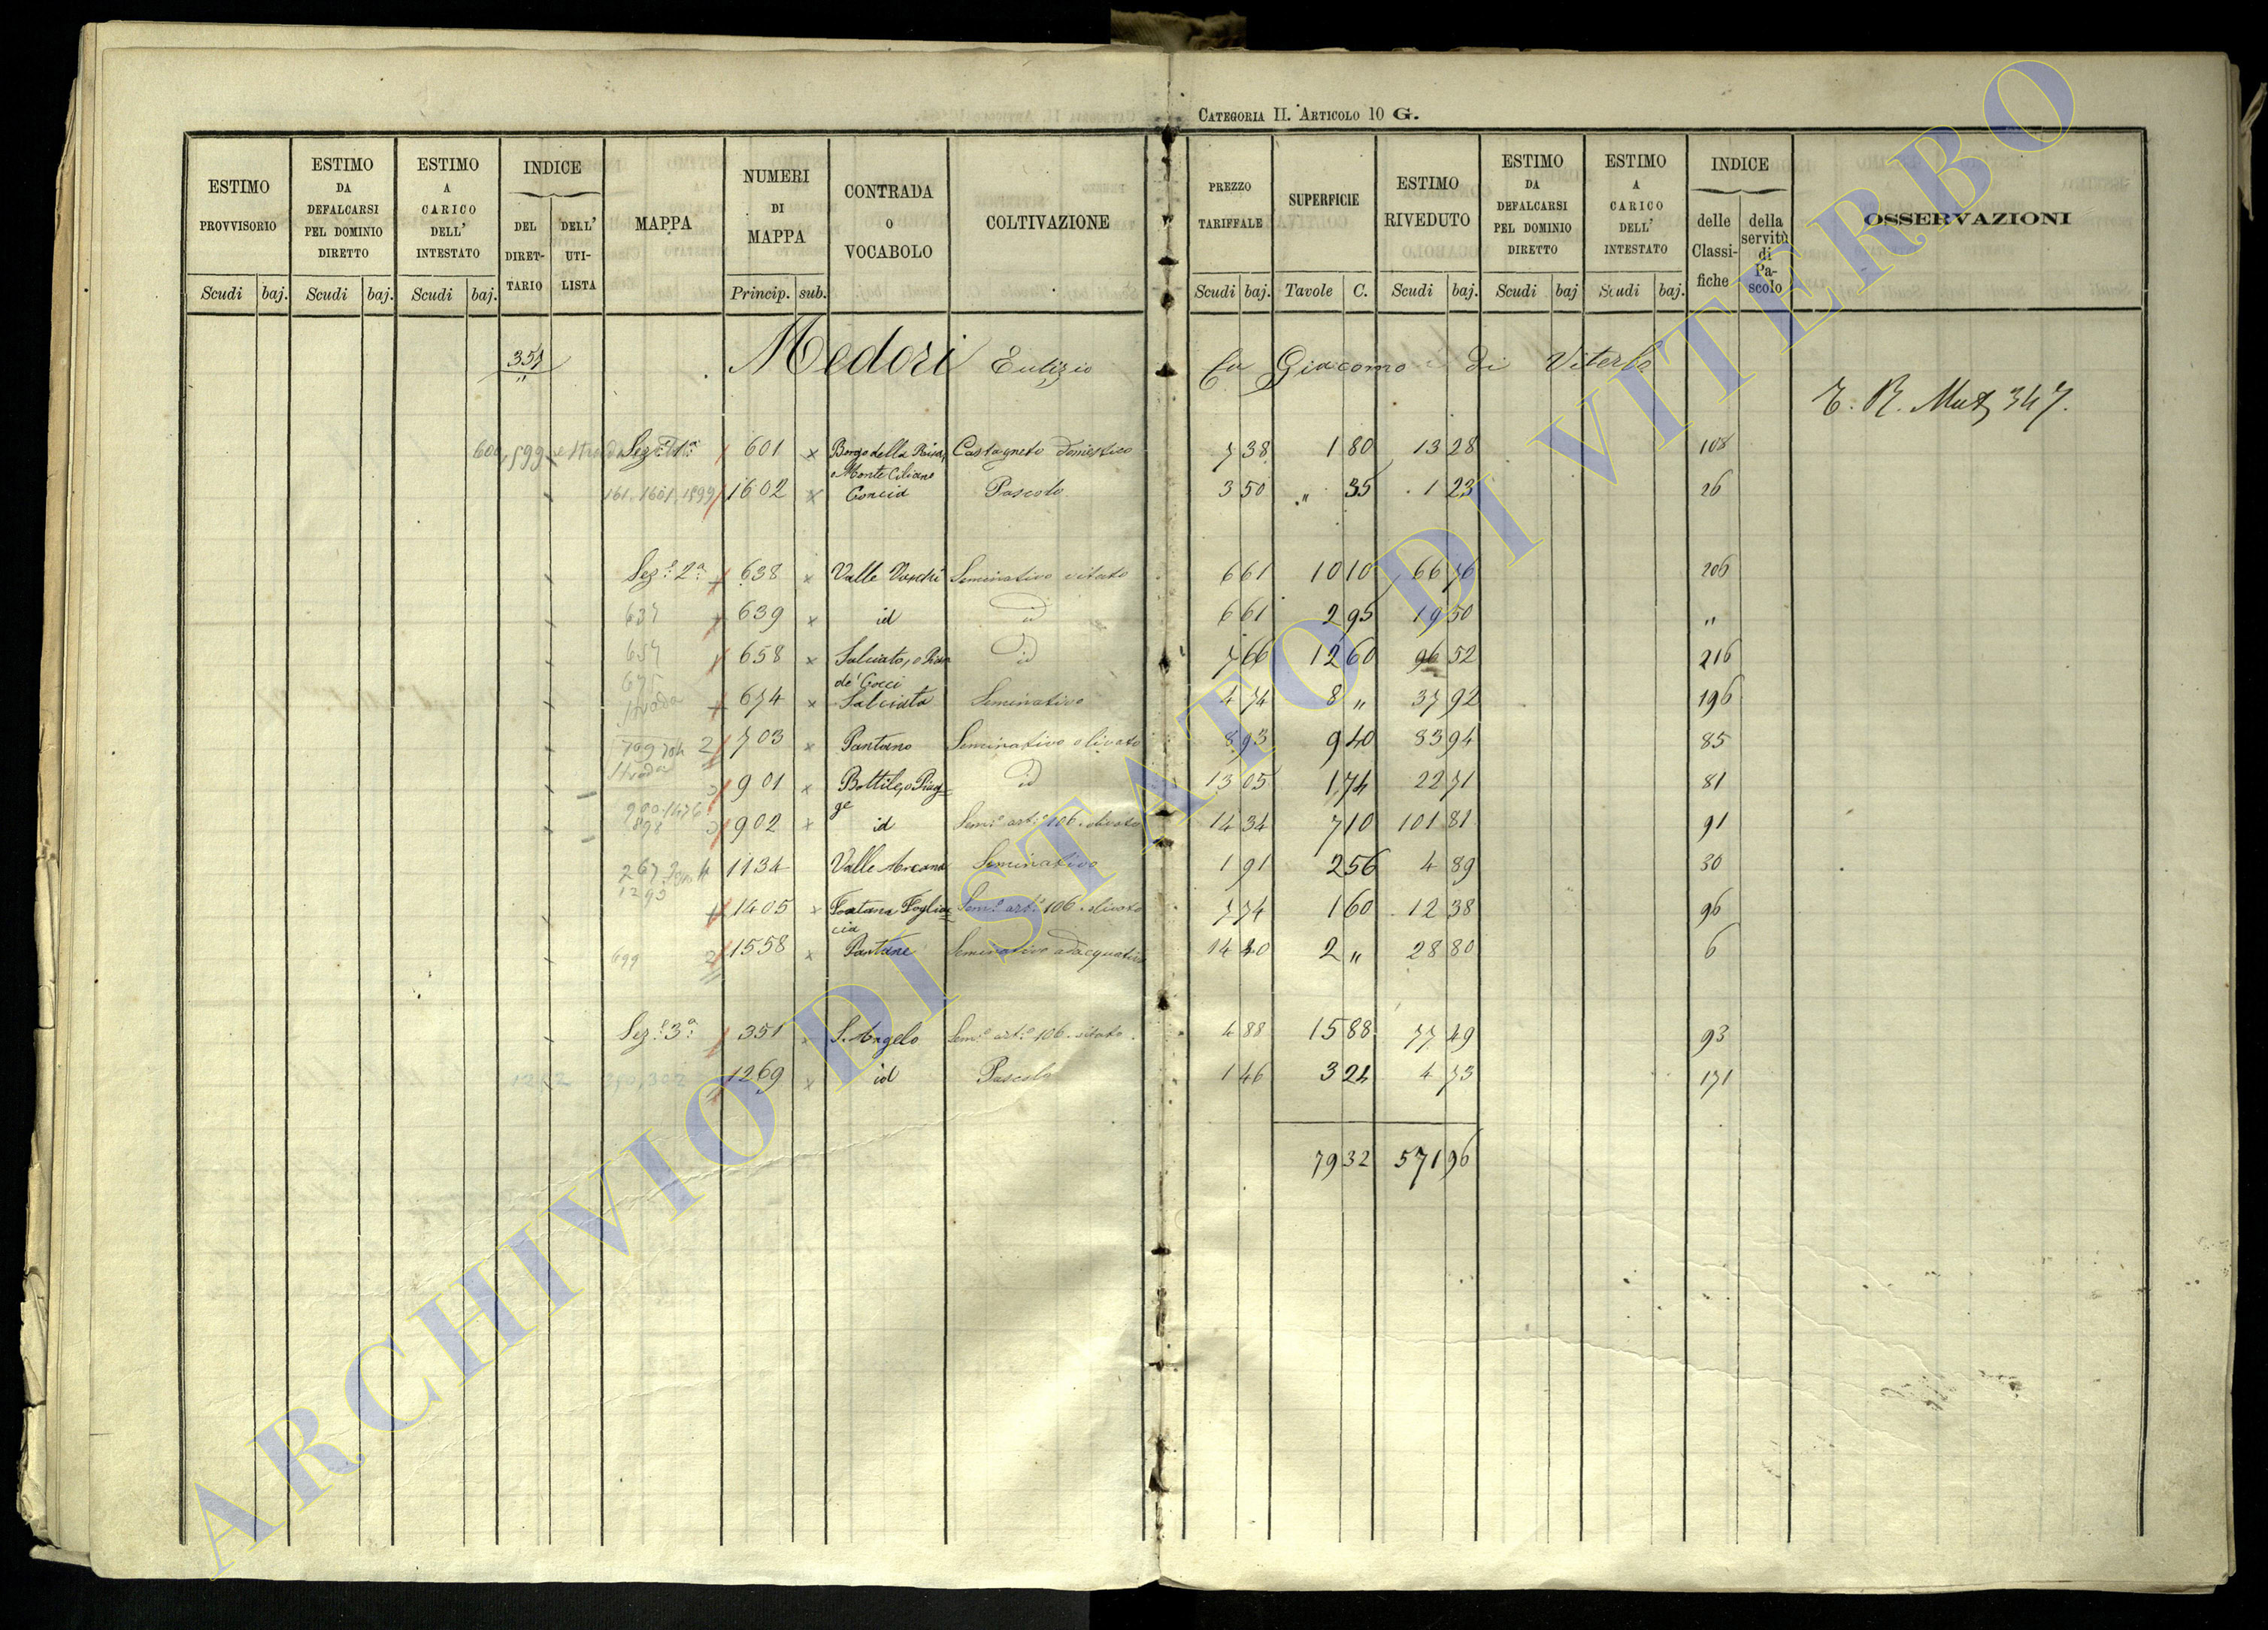 CATEGORIA II. ARTICOLO 10 G.
ESTIMO PROVVISORIO Scudi baj.
ESTIMO DA DEFALCARSI PEL DOMINIO DIRETTO Scudi baj.
ESTIMO A CARICO DELL' INTESTATO Scudi baj.
INDICE DEL DIRET-TARIO DELL' UTI-LISTA
MAPPA
NUMERI DI MAPPA Princip. sub.
CONTRADA O VOCABOLO
COLTIVAZIONE
PREZZO TARIFFALE Scudi baj.
SUPERFICIE Tavole C.
ESTIMO RIVEDUTO Scudi baj.
ESTIMO DA DEFALCARSI PEL DOMINIO DIRETTO Scudi baj
ESTIMO A CARICO DELL' INTESTATO Scudi baj.
INDICE delle Classi-fiche della servitù di Pa-scolo
OSSERVAZIONI
351 Medori Eutizio fu Giacomo di Viterbo
T. R. Mut. 347.
600, 599 e strada Sez.e 1a 601 x Castagneto domestico 7 38 1 80 13 28 108
e Monte Ciliano
161, 1601, 1899 1602 x Concia Pascolo 3 50 " 35 1 23 26
Sez.e 2a 638 x Valle Seminativo vitato 6 61 10 10 66 76 206
637 639 x id id 6 61 2 95 19 50 "
657 658 x Salciato, o id 7 66 12 60 96 52 216
675 de' Gocci
strada 674 x Salciata Seminativo 4 74 8 " 37 92 196
709 704 2 703 x Pantano Seminativo olivato 8 93 9 40 83 94 85
strada
901 x Bottile, o Piag= id 13 05 1 74 22 71 81
900. 1476 ge
898 902 x id Sem.o art.o 106. olivato 14 34 7 10 101 81 91
267 1134 Valle Arcana Seminativo 1 91 2 56 4 89 30
1293
1405 x Fontana Foglia= Sem.o art.o 106. olivato 7 74 1 60 12 38 96
cia
699 2 1558 x Pantane Seminativo adacquativo 14 40 2 " 28 80 6
Sez.e 3a 351 x S. Angelo Sem.o art.o 106. vitato 4 88 15 88 77 49 93
350, 302 1269 x id Pascolo 1 46 3 24 4 73 171
79 32 571 96
ARCHIVIO DI STATO DI VITERBO